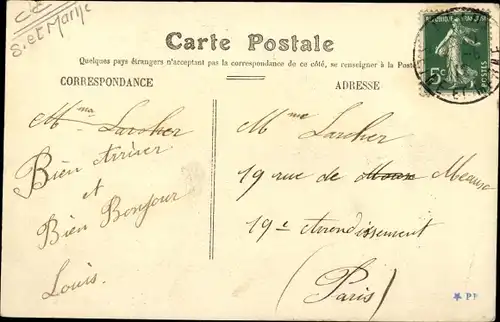 S. et Marne
Carte Postale
Quelques pays étrangers n'acceptant pas la correspondance de ce côté, se renseigner à la Poste
CORRESPONDANCE
ADRESSE
Mme Larcher
Bien Arriver
et
Bien Bonjour
Louis.
Mme Larcher
19 rue de Meaux
19e Arrondissement
(Paris)
5c
POSTES